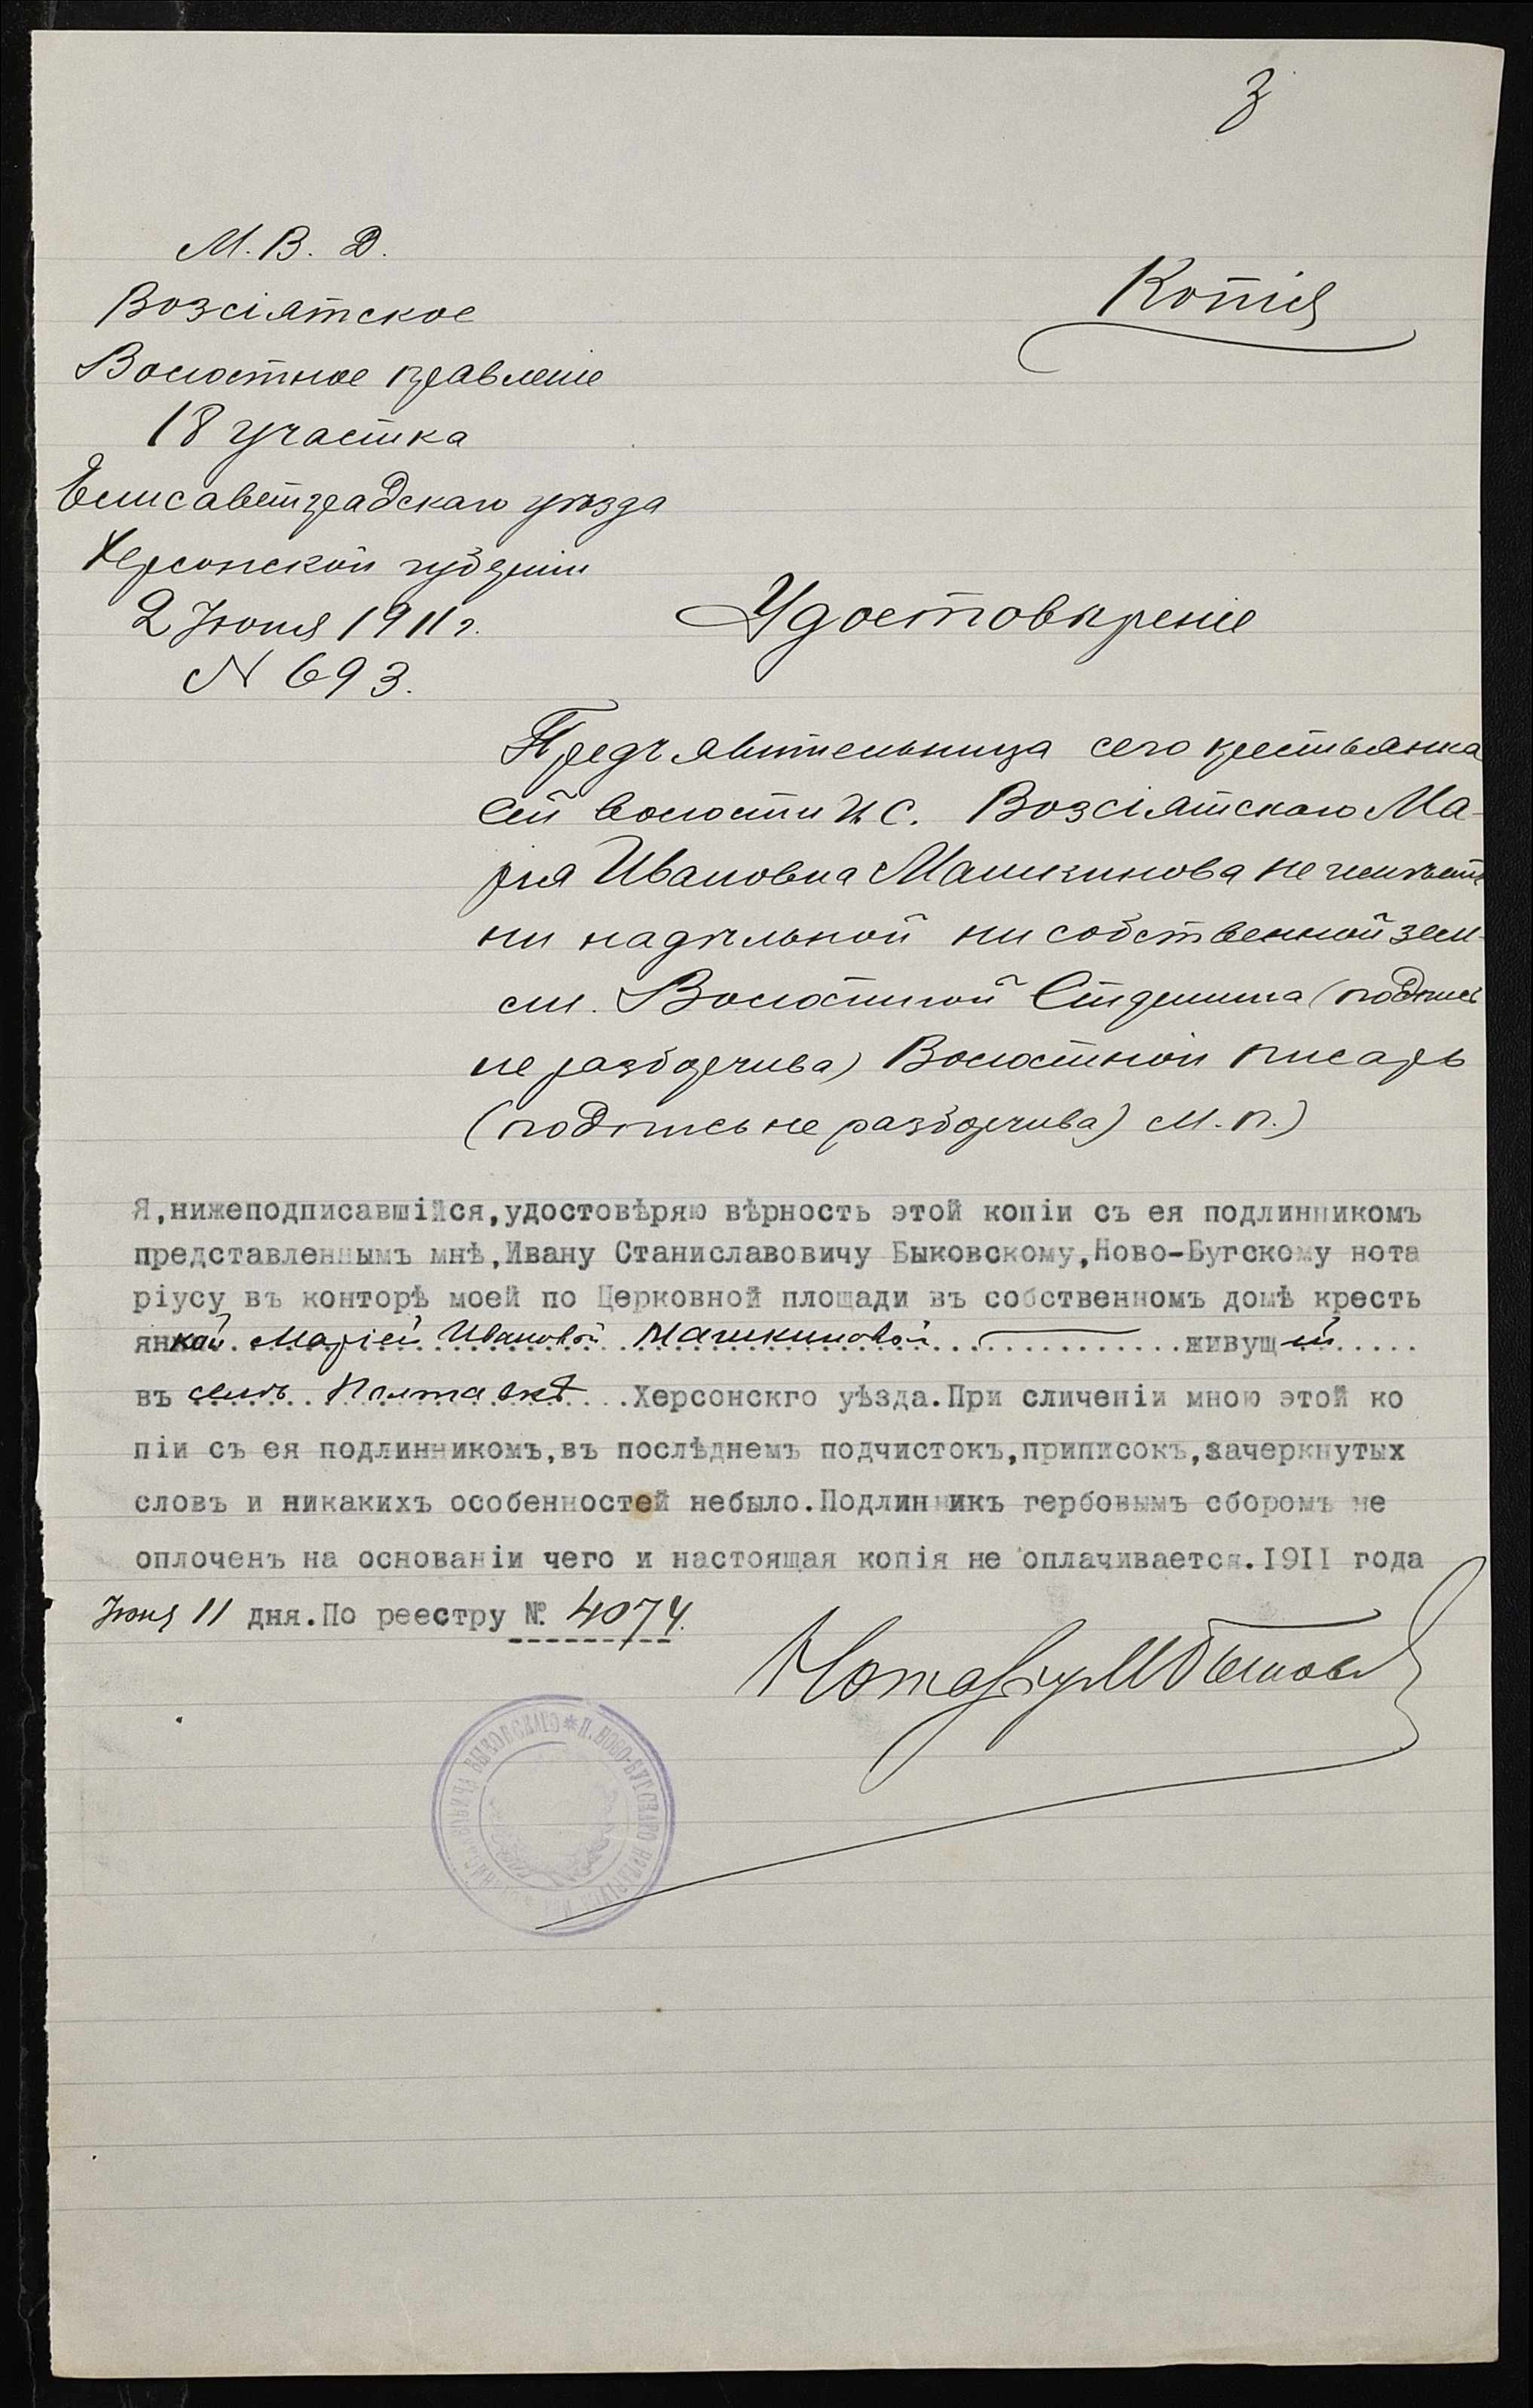 3
М. В. Д.
Возсіятское
Волостное правленіе
18 участка
Елисаветградскаго уѣзда
Херсонской губерніи
2 Іюня 1911 г.
N 693.
Копія
Удостовѣреніе
Предъявительница сего крестьянка
сей волости и с. Возсіятскаго Ма-
рія Ивановна Машкинова не имѣетъ
ни надѣльной ни собственной зем-
ли. Волостной Старшина (подпись
не разборчива) Волостной писарь
(подпись не разборчива) М. П.)
Я,нижеподписавшійся,удостовѣряю вѣрность этой копіи съ ея подлинникомъ
представленнымъ мнѣ,Ивану Станиславовичу Быковскому,Ново-Бугскому нота
ріусу въ конторѣ моей по Церковной площади въ собственномъ домѣ кресть
янкой Маріей Ивановой Машкиновой живущей
въ селѣ Полтавкѣ Херсонскго уѣзда.При сличеніи мною этой ко
піи съ ея подлинникомъ,въ послѣднемъ подчистокъ,приписокъ,зачеркнутых
словъ и никакихъ особенностей небыло.Подлинникъ гербовымъ сборомъ не
оплоченъ на основаніи чего и настоящая копія не оплачивается.1911 года
Іюня 11 дня.По реестру №. 4074.
Нотаріус И Быковск
* Н. НОВО-БУГСКАГО НОТАРІУСА И. СТАНИСЛАВОВИЧА БЫКОВСКАГО